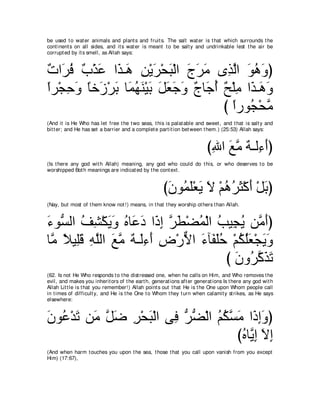 be used to water animals and plants and fruits. The salt water is that which surrounds the
continents on all sides, and its water is meant to be salty and undrinkable lest the air be
corrupted by its smell, as Allah says:
(وَهُوَ الَّذِى مَرَجَ الْبَحْرَيْنِ هَـذَا عَذْبٌ فُرَاتٌ
وَهَـذَا مِلْحٌ أُجَاجٌ وَجَعَلَ بَيْنَهُمَا بَرْزَخاً وَحِجْراً
مَّحْجُوراً )
(And it is He Who has let free the two seas, this is palatable and sweet, and that is salty and
bitter; and He has set a barrier and a complete partition between them.) (25:53) Allah says:
(أَءِلَـهٌ مَّعَ اللهِ)
(Is there any god with Allah) meaning, any god who could do this, or who deserves to be
worshipped Both meanings are indicated by the context.
(بَلْ أَكْثَرُهُمْ لاَ يَعْلَمُونَ)
(Nay, but most of them know not!) means, in that they worship others than Allah.
(أَمَّن يُجِيبُ الْمُضْطَرَّ إِذَا دَعَاهُ وَيَكْشِفُ السُّوءَ
وَيَجْعَلُكُمْ حُلَفَآءَ الاٌّرْضِ أَءِلَـهٌ مَّعَ اللَّهِ قَلِيلاً مَّا
تَذَكَّرُونَ )
(62. Is not He Who responds to the distressed one, when he calls on Him, and Who removes the
evil, and makes you inheritors of the earth, generations after generations Is there any god with
Allah Little is that you remember!) Allah points out that He is the One upon Whom people call
in times of difficulty, and He is the One to Whom they turn when calamity strikes, as He says
elsewhere:
(وَإِذَا مَسَّكُمُ الْضُّرُّ فِى الْبَحْرِ ضَلَّ مَن تَدْعُونَ
إِلاَ إِيَّاهُ)
(And when harm touches you upon the sea, those that you call upon vanish from you except
Him) (17:67),